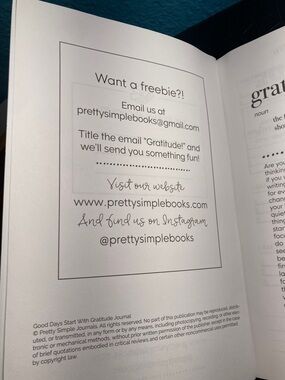 Want a freebie?!
Email us at
prettysimplebooks@gmail.com
Title the email "Gratitude!" and
we'll send you something fun!
Visit our website
www.prettysimplebooks.com
And find us on Instagram
@prettysimplebooks
Good Days Start With Gratitude Journal
© Pretty Simple Journals. All rights reserved. No part of this publication may be reproduced, distrib-
uted, or transmitted, in any form or by any means, including photocopying, recording, or other elec-
tronic or mechanical methods, without prior written permission of the publisher, except in the case
of brief quotations embodied in critical reviews and certain other noncommercial uses permitted
by copyright law.
grat
noun
the
sho
Are you
thinking
if you
writing
for
chan
your
quie
thing
star